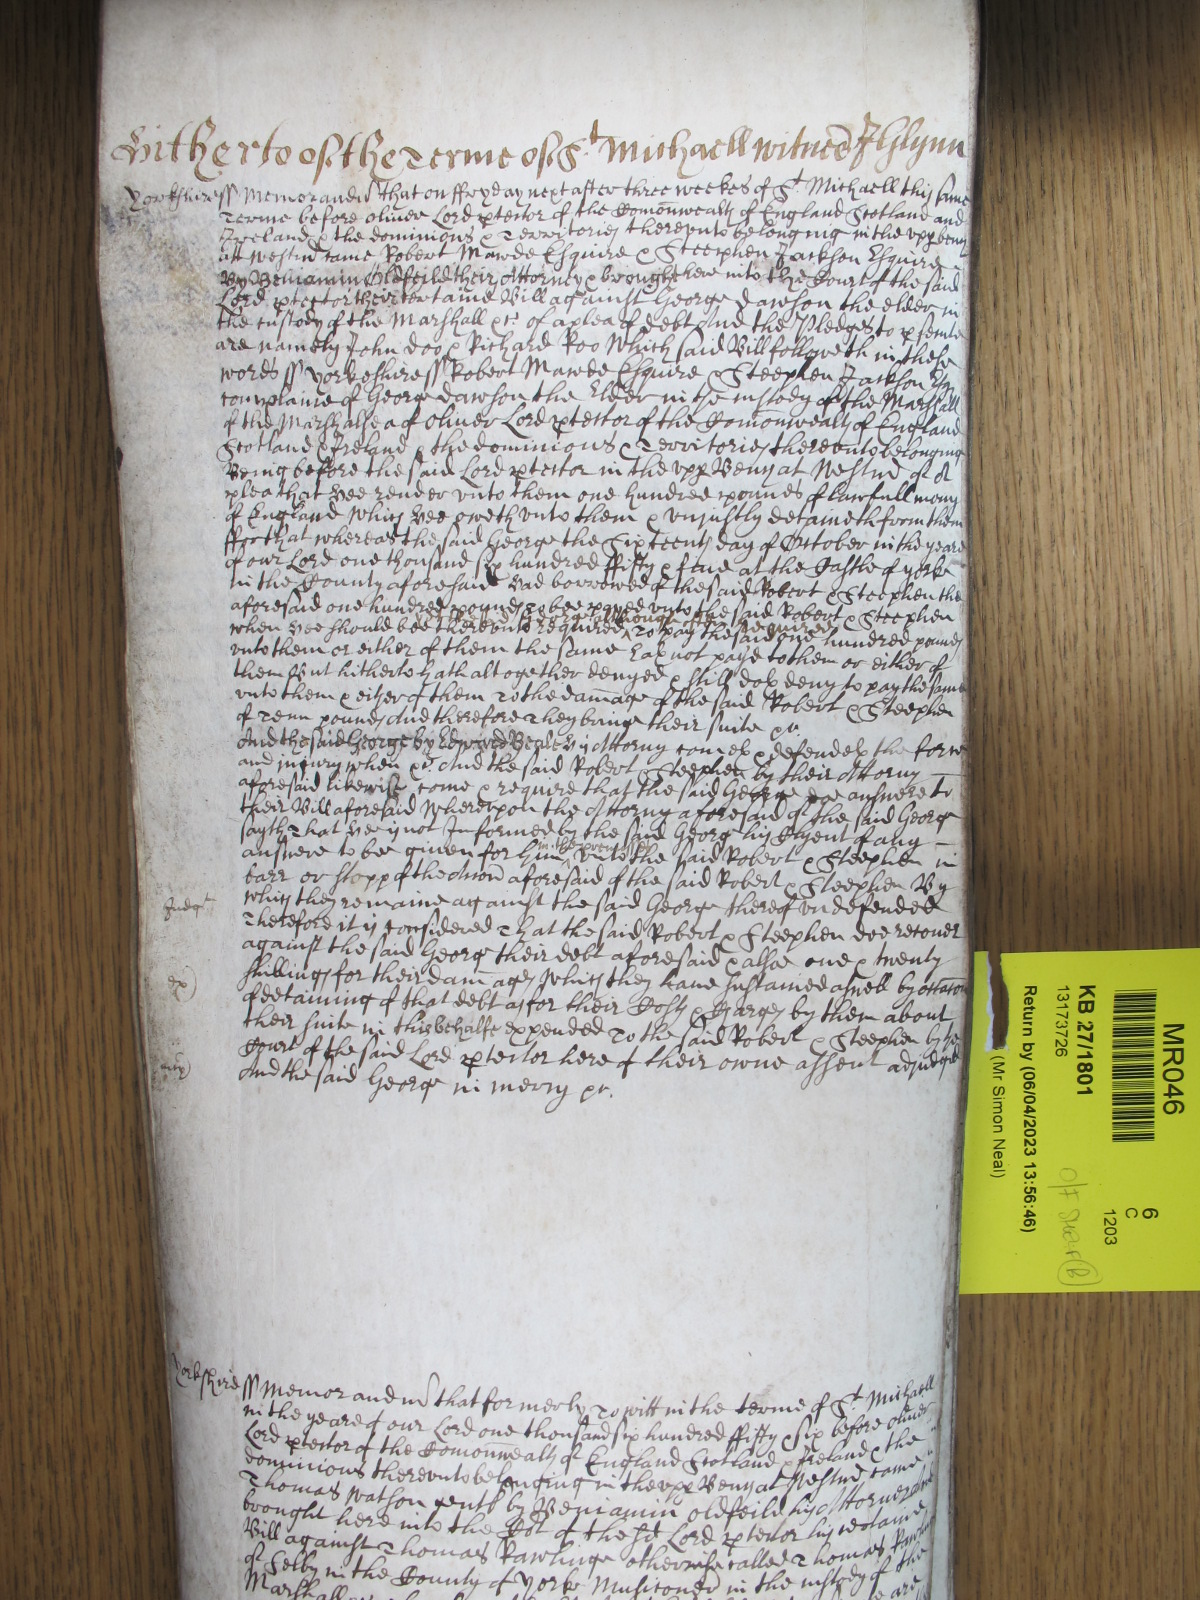 Hitherto of the Terme of St Michaell witnes J Glynn
Yorkshire ss Memorandu that on ffryday next after three weekes of St Michaell this same
Terme before Oliver Lord ptector of the Comonwealth of England Scotland and
Ireland & the dominions & Territories thereunto belonging in the upp bench
att Westmr came Robert Mawde Esquire & Steephen Jackson Esquire
By Beniamin Oldfeild their Attorney & brought here into the Court of the said
Lord ptector their certaine Bill against George dawson the elder in
the custody of the Marshall &c of a plea of debt And the Pledges to psecute
are namely John doo & Richard Roo Which said Bill followeth in these
words ss Yorkeshire ss Robert Mawde Esquire & Steephen Jackson Esq
complaine of George dawson the Elder in the custody of the Marshall
of the Marshalsea of Oliver Lord ptector of the Comonwealth of England
Scotland & Ireland & the dominions & Territories thereunto belonging
Being before the said Lord ptector in the upp Bench at Westmr of a
plea that hee render unto them one hundred pounds of lawfull mony
of England which hee oweth unto them & unjustly detaineth from them
ffor that whereas the said George the Sixteenth day of October in the yeare
of our Lord one thousand six hundred ffifty & five at the Castle of yorke
in the County aforesaid had borrowed of the said Robert & Steephen the
aforesaid one hundred pounds to bee payed unto the said Robert & Steephen
when hee should bee thereunto required
George although often required
to pay the said one hundred pounds
unto them or either of them the same hath not payd to them or either of
them But hitherto hath altogether denyed & still doth deny to pay the same
unto them & either of them To the damage of the said Robert & Steephen
of Tenn pounds And therefore they bringe their suite &c
And the said George by Edward Beale his Attorny cometh & defendeth the force
and injury when &c And the said Robert & Steephen by their Attorny
aforesaid likewise come & require that the said George doe answere to
their Bill aforesaid Whereupon the Attorny aforesaid of the said George
sayth That hee is not Informed by the said George his Clyent of any
answere to bee given for him in the premisses unto the said Robert & Steephen in
barr or stopp of the Accon aforesaid of the said Robert & Steephen By
Judgt
which they remaine against the said George thereof undefended
Therefore it is considered That the said Robert & Steephen doe recover
against the said George their debt aforesaid & alsoe one & twenty
shillings for their damages which they have sustained aswell by occasion
ex)
of detaining of that debt as for their Costs & Charges by them about
their suite in this behalfe expended To the said Robert & Steephen by the
Court of the said Lord ptector here of their owne assent adjudged
mcy)
And the said George in mercy &c.
Yorkshire ss Memorandu that formerly To witt in the terme of St Michaell
in the yeare of our Lord one thousand six hundred ffifty & six before Oliver
Lord ptector of the Comonwealth of England Scotland & Ireland & the
dominions thereunto belonging in the upp Bench at Westmr came
Thomas Watson gentl by Beniamin Oldfeild his Attorney and
brought here into the Cot of the sd Lord ptector his certaine
Bill against Thomas Rawlinge otherwise called Thomas
of Selby in the County of Yorke in the custody of the
Marshall
are
MR046
6
C
1203
KB 27/1801
13173726
Return by (06/04/2023 13:56:46)
(Mr Simon Neal)